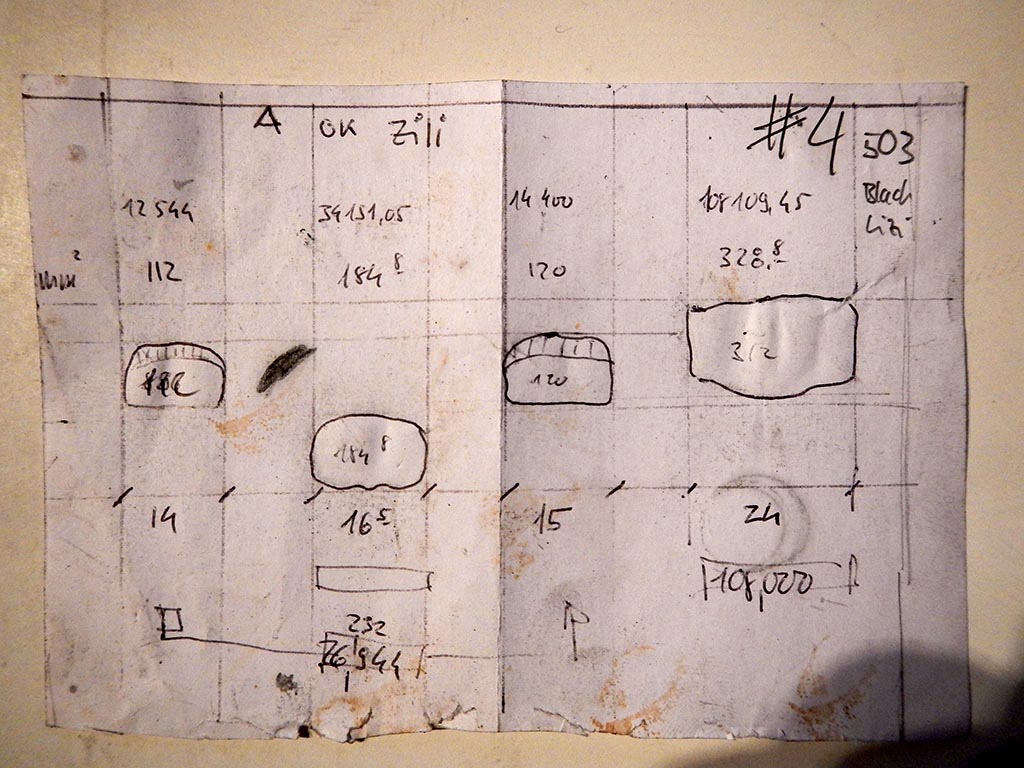 A OK Zili #4 503
12544 34151,05 14400 108109,45 Black
Lizi
mm² 112 184⁸ 120 328,⁸
120 312
184⁸
14 16⁵ 15 24
108,000
232
944